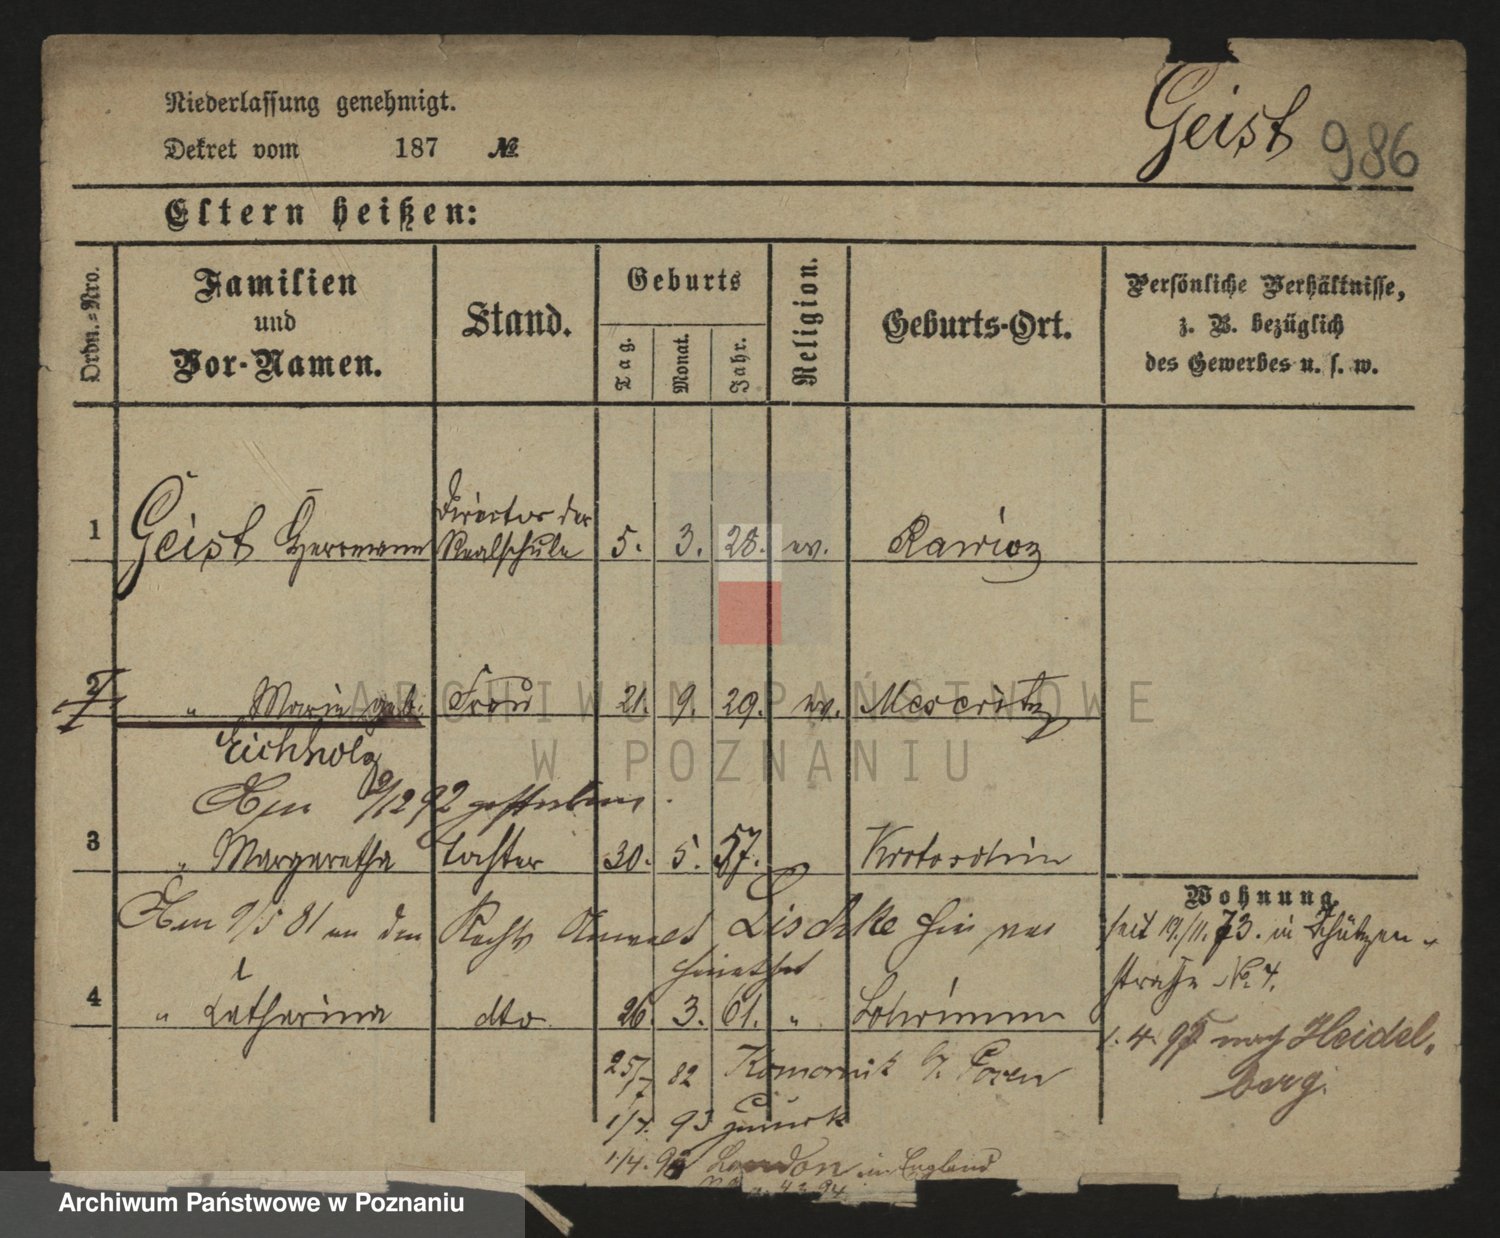 Niederlassung genehmigt.
Dekret vom 187 №
Geist 986
Eltern heißen:
Ordn.-Nro.
Familien und Vor-Namen.
Stand.
Geburts
Tag.
Monat.
Jahr.
Religion.
Geburts-Ort.
Persönliche Verhältnisse,
z. B. bezüglich
des Gewerbes u. s. w.
1 Geist Herrmann Director der Realschule 5. 3. 28. ev. Rawicz
2 " Marie geb. Frau 21. 9. 29. ev. Meseritz
Eichholz
Am 9/12 92 gestorben.
3 " Margaretha Tochter 30. 5. 57. Krotoschin
Am 9/5 81 an den Rechts Anwalt Lischke hier ver
heirathet
4 " Catharina dto 26. 3. 61. "
25/7 82 Komornik b/ Posen
1/7. 93 zurück
1/4. London in England
4 3 94
Wohnung
seit 19./11. 73. in Schützen-
straße No. 4.
1. 4. nach Heidel-
berg.
ARCHIWUM PAŃSTWOWE
W POZNANIU
Archiwum Państwowe w Poznaniu